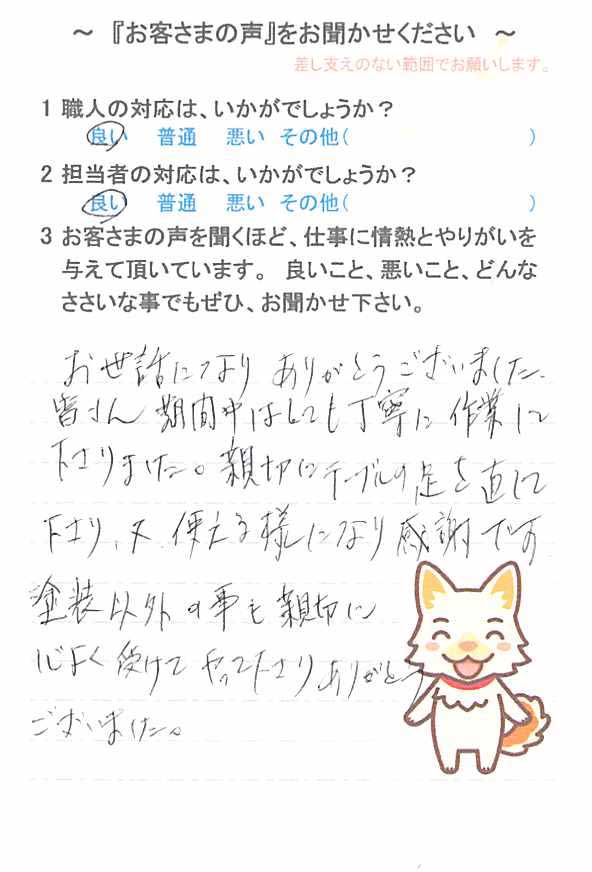 ～ 『お客さまの声』をお聞かせください ～
差し支えのない範囲でお願いします。
1 職人の対応は、いかがでしょうか？
良い 普通 悪い その他( )
2 担当者の対応は、いかがでしょうか？
良い 普通 悪い その他( )
3 お客さまの声を聞くほど、仕事に情熱とやりがいを
与えて頂いています。 良いこと、悪いこと、どんな
ささいな事でもぜひ、お聞かせ下さい。
お世話になり ありがとうございました、
皆さん 期間中はとても丁寧に作業して
下さりました。親切にテーブルの足を直して
下さり、又、使える様になり感謝です
塗装以外の事も親切に
心よく受けてやって下さりありがとう
ございました。